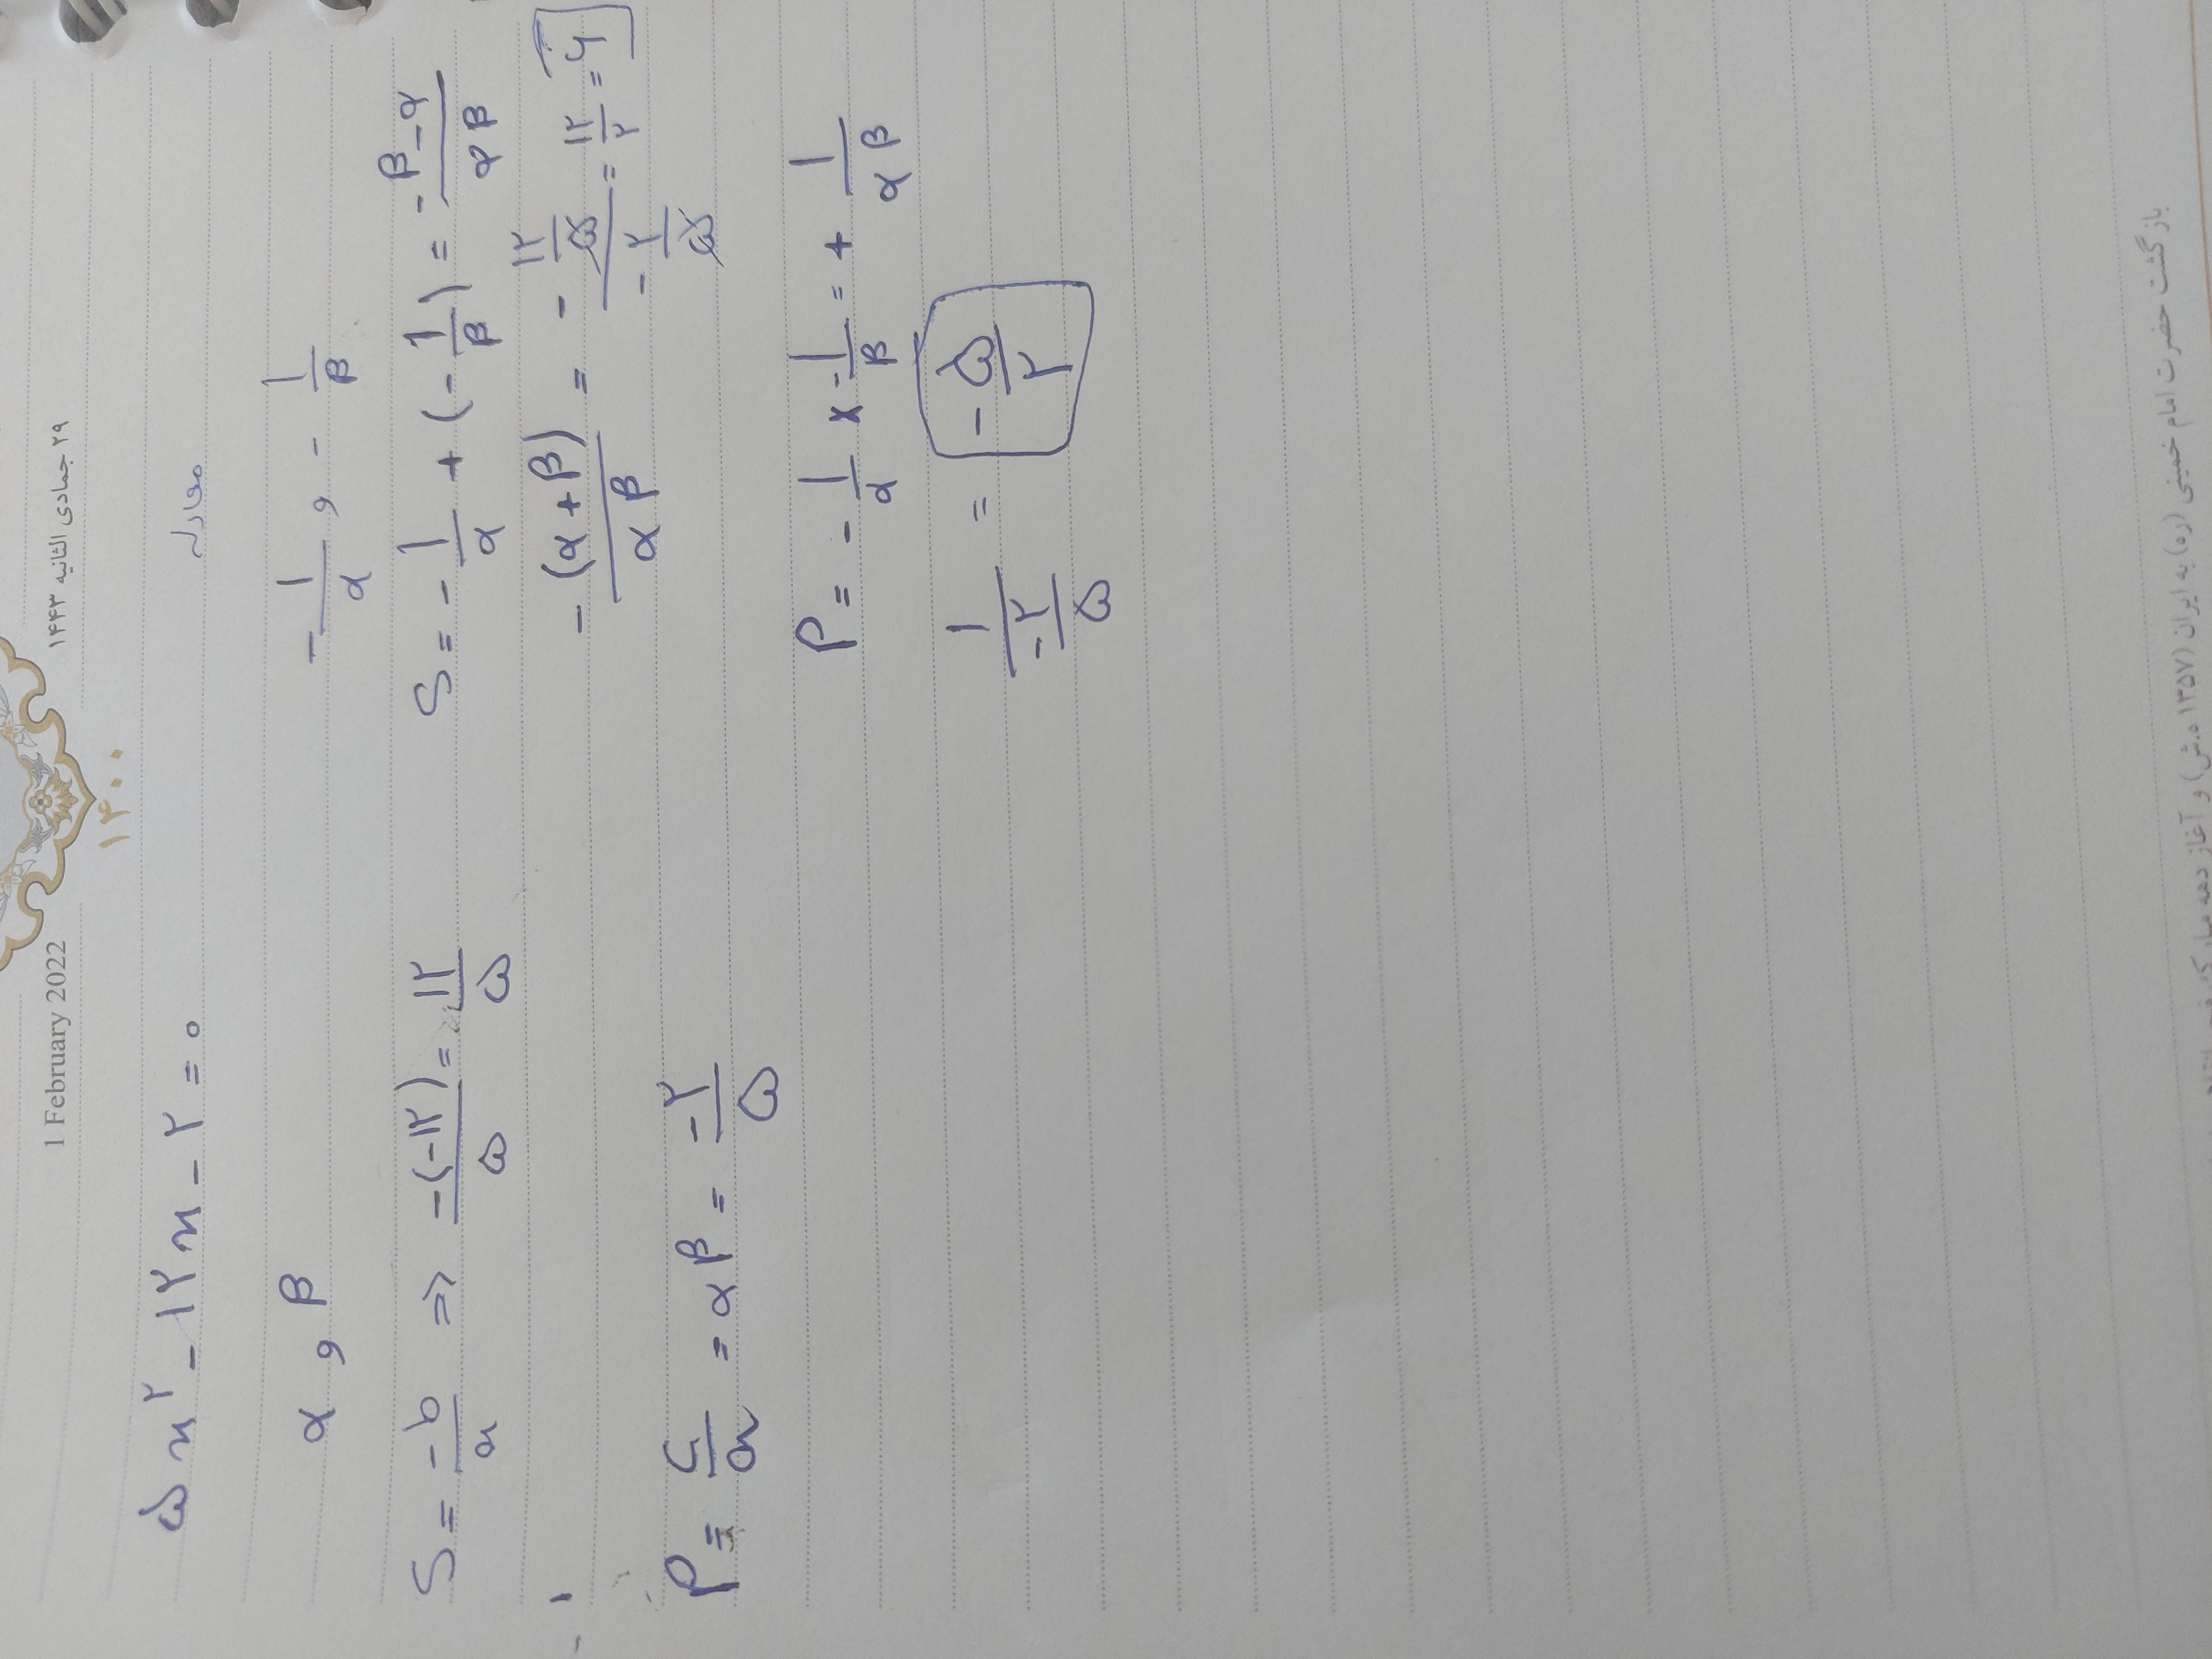 1 February 2022
۲۹ جمادی الثانیه ۱۴۴۳
۱۴۰۰
۵x² - ۱۲x - ۲ = ۰
معادله
α و β
-1/α و -1/β
S = -b/a ⇒ -(-۱۲)/۵ = ۱۲/۵
S = -1/α + (-1/β) = -β-α/αβ
-(α+β)/αβ = -۱۲/۵/-۲/۵ = ۱۲/۲ = ۶
P = c/a = αβ = -۲/۵
P = -1/α × -1/β = + 1/αβ
1/-۲/۵ = -۵/۲
بازگشت حضرت امام خمینی (ره) به ایران (۱۳۵۷ ه.ش) و آغاز دهه مبارک فجر